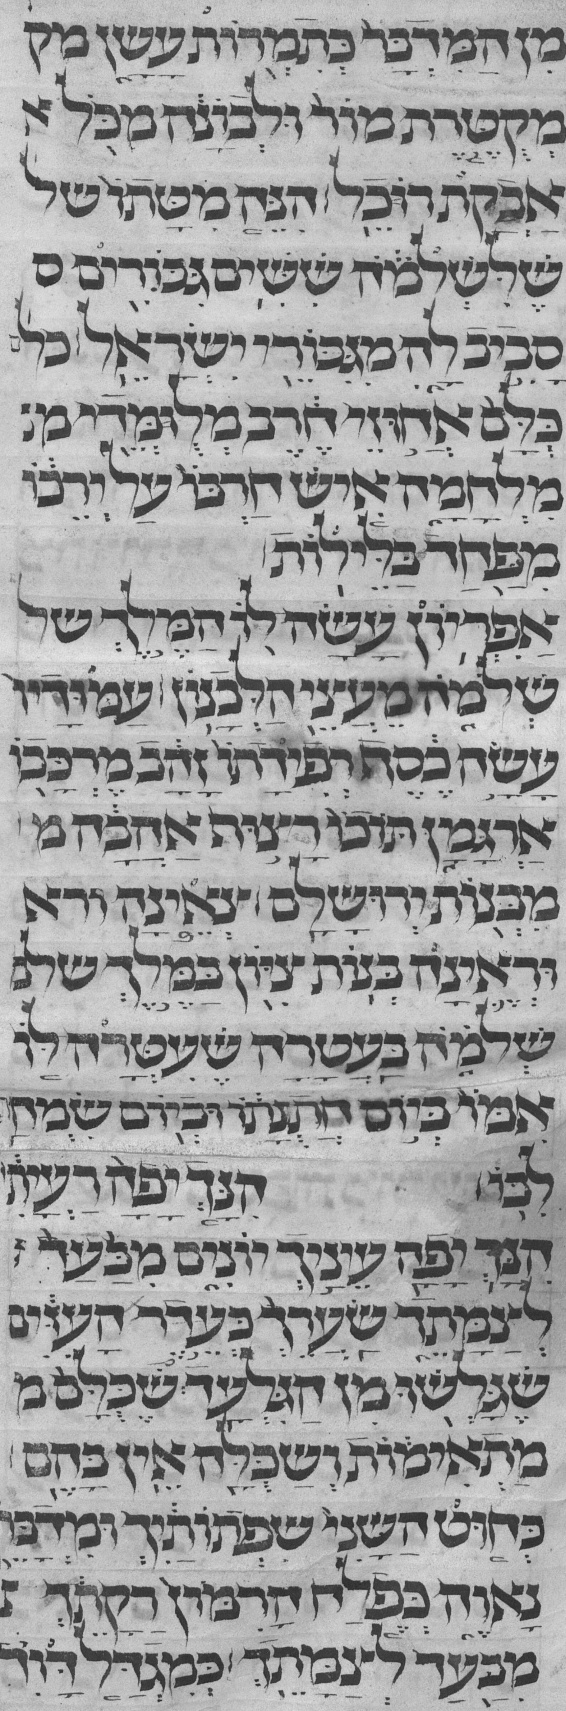 מן המדבר כתמרות עשן מק
מקטרת מור ולבונה מכל א
אבקת רוכל הנה מטתו של
שלשלמה ששים גבורים ס
סביב לה מגבורי ישראל כל
כלם אחוזי חרב מלומדי מ
מלחמה איש חרבו על ירכו
מפחד בלילות
אפריון עשה לו המלך של
שלמה מעצי הלבנון עמודיו
עשה כסף רפידתו זהב מרכבו
ארגמן תוכו רצוף אהבה מ
מבנות ירושלם צאינה ורא
וראינה בנות ציון במלך שלמ
שלמה בעטרה שעטרה לו
אמו ביום חתנתו וביום שמח
לבו הנך יפה רעיתי
הנך יפה עיניך יונים מבעד
לצמתך שערך כעדר העזים
שגלשו מן הגלעד שכלם מ
מתאימות ושכלה אין בהם
כחוט השני שפתותיך ומדברך
נאוה כפלח הרמון רקתך
מבעד לצמתך כמגדל דויד